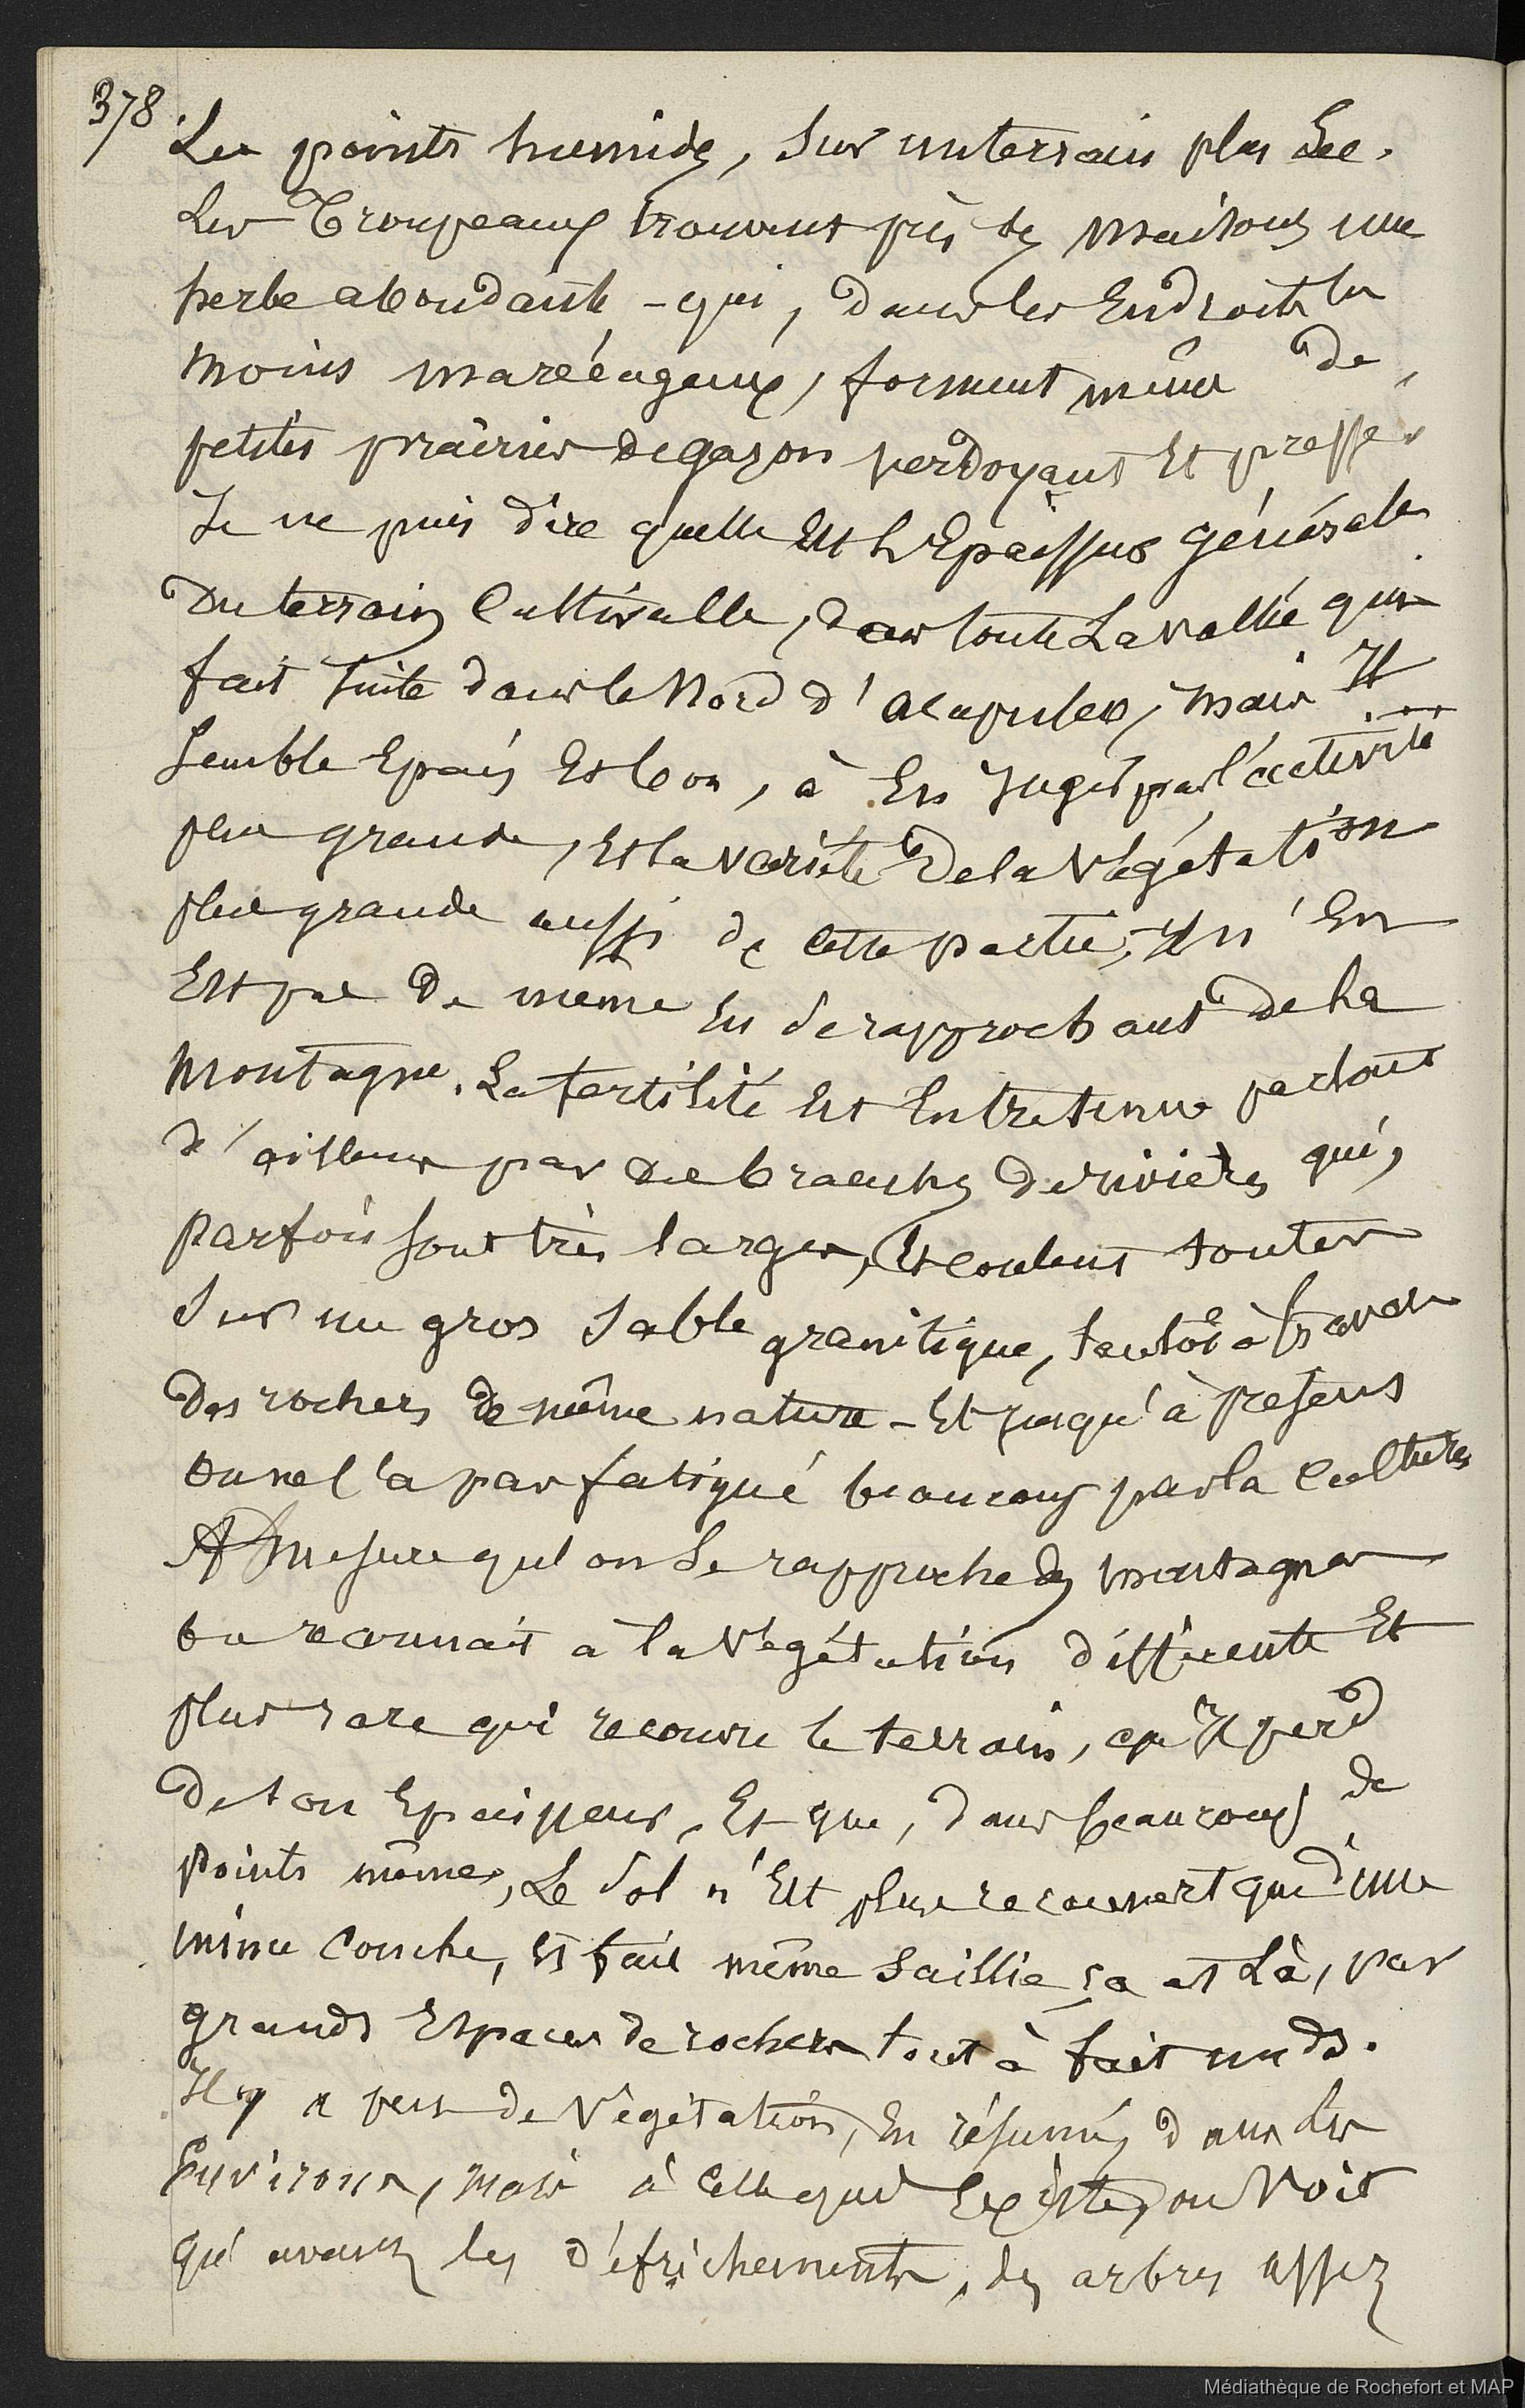 378.
Les points humides, sur un terrain plus sec.
Les Troupeaux trouvent près des maisons une
herbe abondante - qui, dans les Endroits les
moins marécageux, forment même de
petites prairies de gazon verdoyant Et pressé
Je ne puis dire quelle Est L'Epaisseur générale
Du terrain Cultivable, dans toute La vallée qui
fait suite dans le Nord d'Acapulco, mais Il
semble Epais Et bon, à En juger par l'activité
plus grande, Et la variété De la Végétation
plus grande aussi de cette partie, Il n'En
Est pas De même En se rapprochant De La
Montagne. La fertilité Est Entretenue partout
d'ailleurs par des branches de rivières qui,
parfois sont très larges, Et coulent toutes
sur un gros sable granitique, tantôt à travers
Des rochers De même nature - Et jusqu'à présent
On ne l'a pas fatigué beaucoup par la Culture
A Mesure qu'on Se rapproche des montagnes
on reconnait à la Végétation différente Et
plus rare qui recouvre le terrain, qu'Il perd
De son Epaisseur, Et que, dans beaucoup de
points même, Le Sol n'Est plus recouvert que d'une
mince Couche, Et fait même Saillie ça et Là, par
grands Espaces de rochers tout à fait nuds.
Il y a peu de Végétation, En résumé, dans Les
Environs, mais à Celle qui Existe, on Voit
qu'avant les défrichements, des arbres assez
Médiathèque de Rochefort et MAP